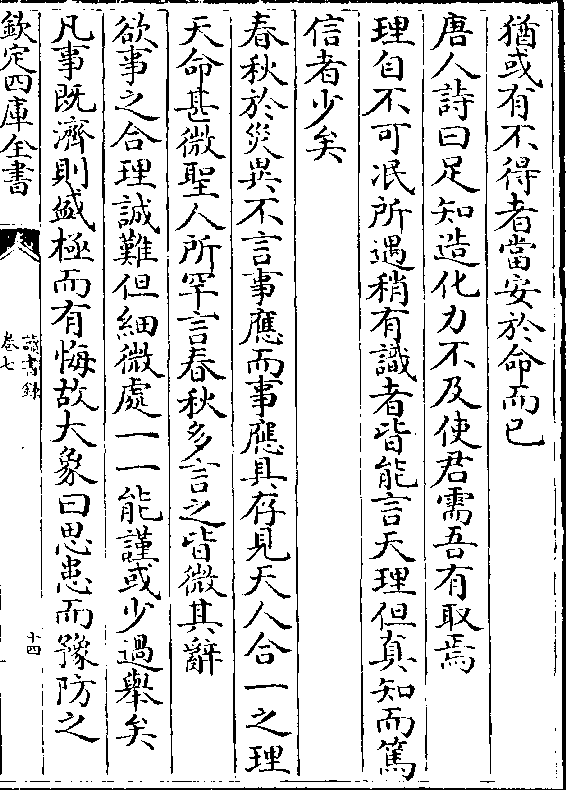 猶或有不得者當安於命而已
唐人詩曰足知造化力不及使君需吾有取焉
理自不可泯所遇稍有識者皆能言天理但真知而篤
信者少矣
春秋於災異不言事應而事應具存見天人合一之理
天命甚微聖人所罕言春秋多言之皆微其辭
欲事之合理誠難但細微處一一能謹或少過舉矣
凡事既濟則盛極而有悔故大象曰思患而豫防之
欽定四庫全書
讀書錄
卷七
十四